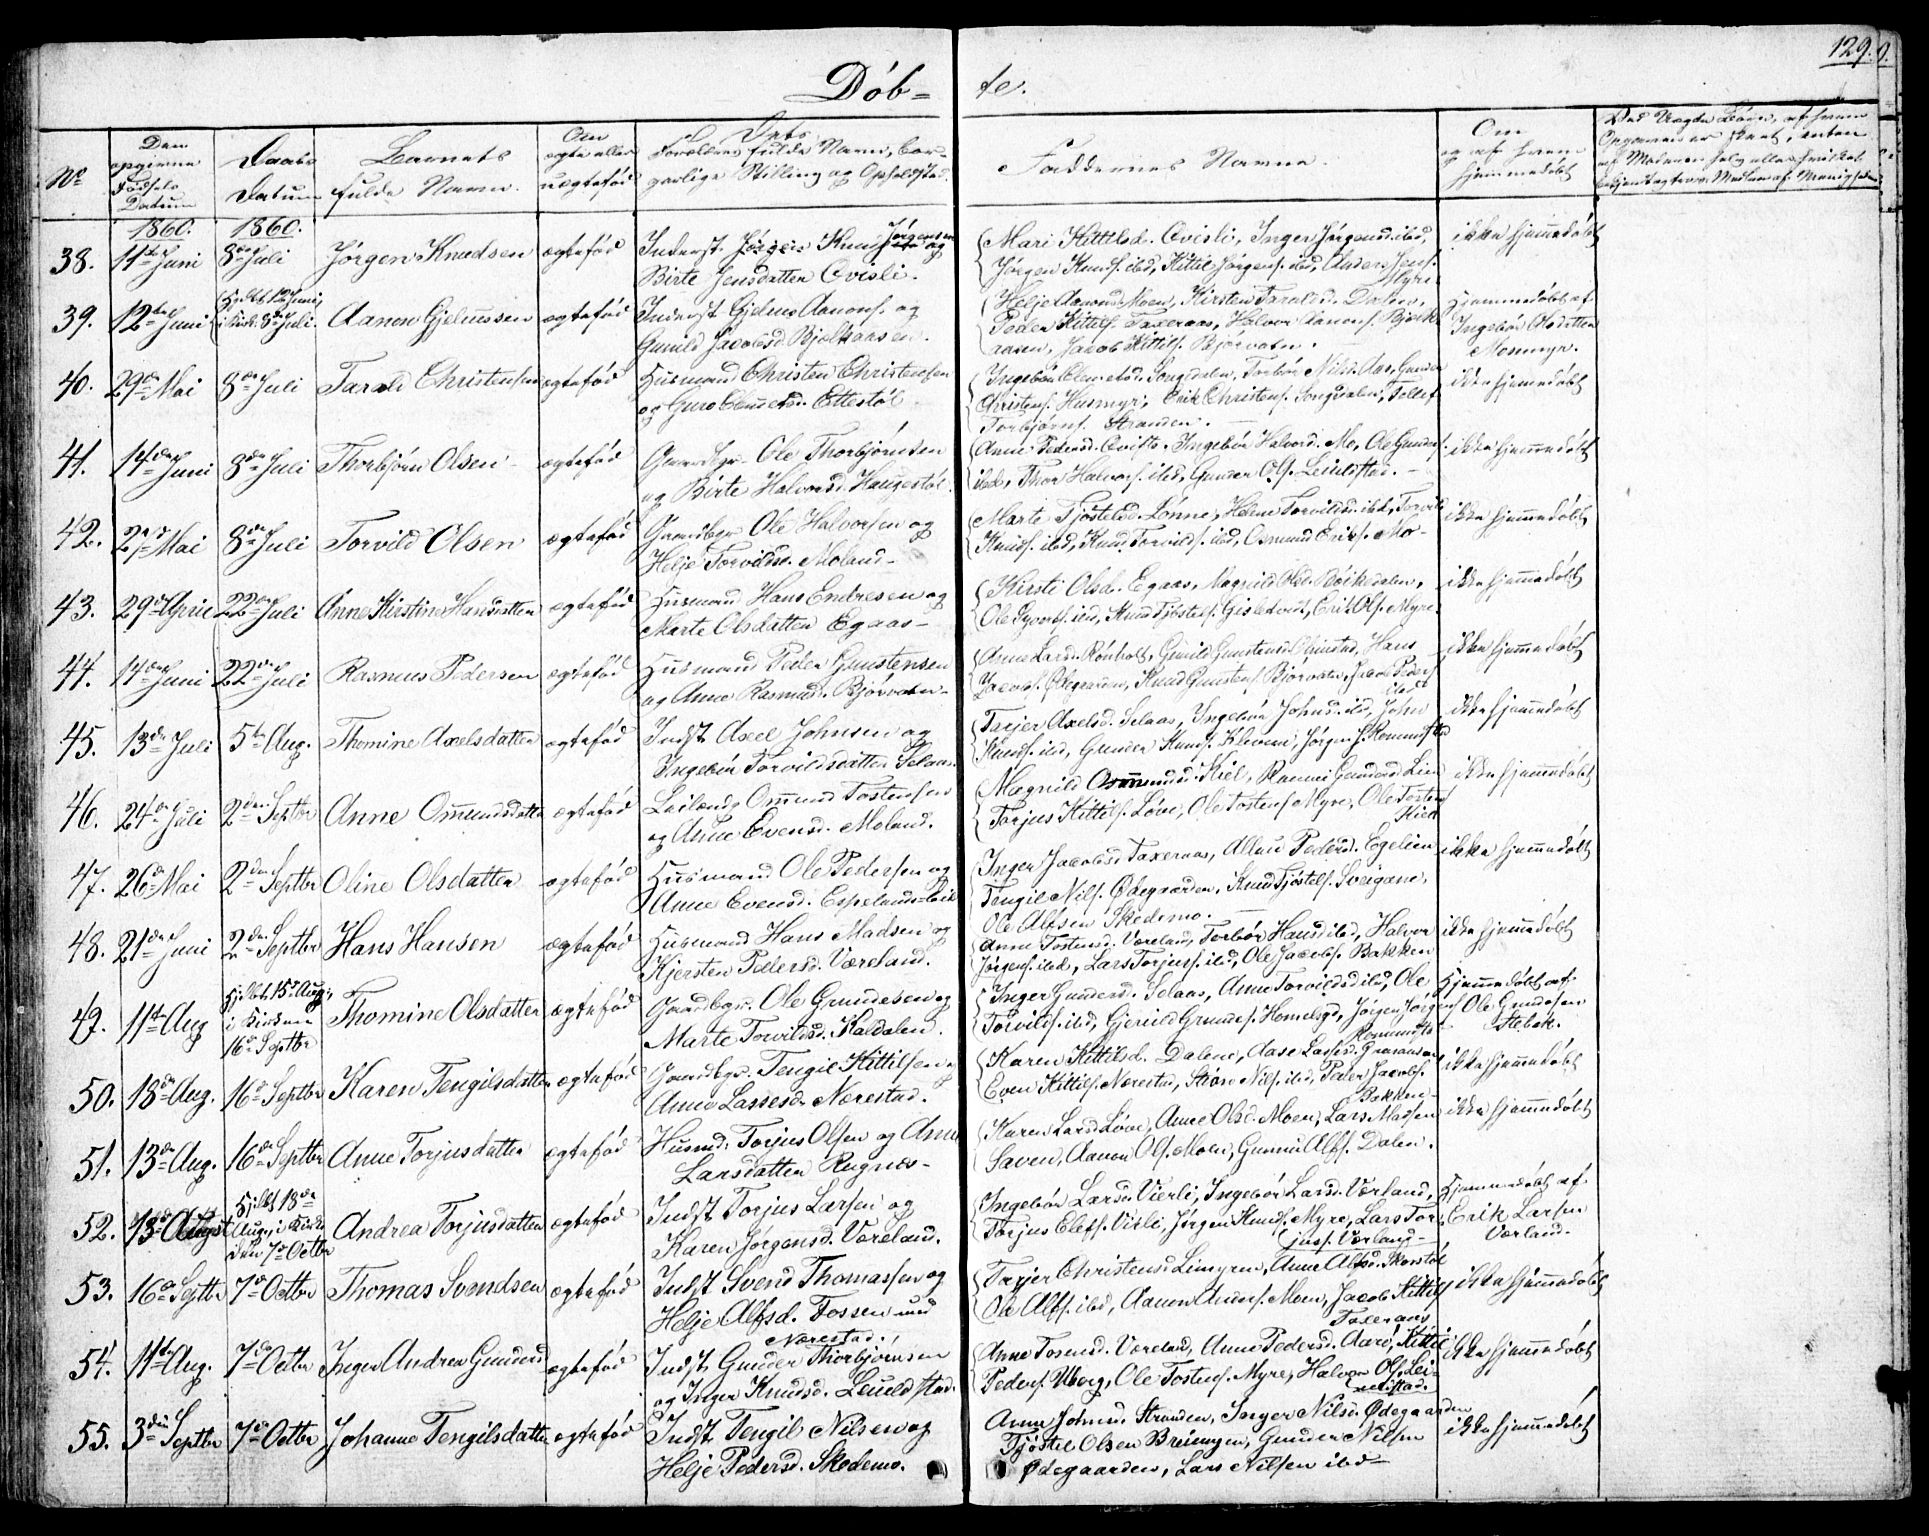 129.
Døb= te.
No
Den opgivne Fødsels Datum
Daabs Datum
Barnets fulde Navn.
Om ægte eller uægtefød
Dets Forældres fulde Navn, borgerlige Stilling og Opholdsted.
Faddernes Navne.
Om og af hvem hjemmedøbt
1860. 1860.
38. 11te Juni 8de Juli Jørgen Knudsen ægtefød Inderst Knud Jørgensen og Birte Jensdatter Ovisli.
Mari Kittilsd. Ovisli, Inger Jørgensd. ibd, Jørgen Knuds. ibd, Kittil Jørgens. ibd, Anders Jens. Myre
ikke hjemmedøbt
39. 12te Juni Hjdbt 12 Juni, i Kirk. 8de Juli. Aanon Gjelmssen ægtefød Inderst Gjelms Aanons. og Gunild Jacobsd. Bjelkaasen.
Helje Aanonsd. Moen, Kirsten Taraldsd. Dalen, Peder Kittils. Taxeraas, Halvor Aanons. Bjelkaasen, Jacob Kittils. Bjørvatn.
Hjemmedøbt af Ingebór Olsdatter Mosmyr.
40. 29de Mai 8de Juli Tarald Christensen ægtefød Husmand Christen Christensen og Guro Clemetsd. Ettestøl
Ingebór Clemetsd. Songedalen, Torbór Nilsd. Aas, Gunder Christens. Husmyr, Erik Christens. Songdalen, Tellef Torbjørns. Stranden.
ikke hjemmedøbt
41. 14de Juni 8de Juli Thorbjørn Olsen ægtefød Gaardbgr. Ole Thorbjørnsen og Birte Halvorsd. Haugestøl.
Anne Pedersd. Ovisli, Ingebór Halvorsd. Mo, Ole Gunders. ibd, Thor Halvors. ibd, Gunder O. Leiulfstad.
ikke hjemmedøbt
42. 27de Mai 8de Juli Torvild Olsen ægtefød Gaardbgr. Ole Halvorsen og Helje Torvildsd. Moland
Marte Tjøstelsd. Lønne, Helene Torvildsd. ibd, Torvild Knuds. ibd, Knud Torvilds. ibd, Osmund Eriks. Mo
ikke hjemmedøbt
43. 29de April 22de Juli Anne Kirstine Hansdatter ægtefød Husmand Hans Endresen og Marte Olsdatter Egaas
Kirsti Olsd. Egaas, Magnild Olsd. Bøikedalen, Ole Syverts. ibd, Knud Tjøstels. Gislefos, Erik Ols. Myre
ikke hjemmedøbt
44. 14de Juni 22de Juli Rasmus Pedersen ægtefød Husmand Peder Gunstensen og Anne Rasmusd. Bjørvatn
Anne Larsd. Rønholt, Gunild Gunstensd. Olimstad, Hans Jacobs. Ødegaarden, Knud Gunstens. Bjørvatn, Jacob Peders. ibd
ikke hjemmedøbt
45. 13de Juli 5te Aug. Thomine Axelsdatter ægtefød Indst. Axel Johnsen og Ingebór Torvildsdatter Selaas
Tarjer Axelsd. Selaas, Ingebór Johnsd. ibd, John Knuds. ibd, Gunder Knuds. Kleveen, Jørgen J. Romundstad
ikke hjemmedøbt
46. 24de Juli 2den Septbr Anne Omundsdatter ægtefød Leilendg. Omund Tostensen og Anne Evensd. Moland.
Magnild Ommundsd. Kiel, Gundersd. Lien, Torjus Kittils. Løve, Ole Tostens. Myre, Ole Tostens. Kiel
ikke hjemmedøbt
47. 26de Mai 2den Septbr Oline Olsdatter ægtefød Husmand Ole Pedersen og Anne Evensd. Espelands
Inger Jacobsd. Taxeraas, Pedersd. Egelien, Tengil Nils. Ødegaarden, Knud Tjøstels. Sveigane, Ole Alfsen Skedsmo.
ikke hjemmedøbt
48. 21de Juni 2den Septbr Hans Hansen ægtefød Husmand Hans Madsen og Kjersten Pedersd. Væreland.
Anne Tostensd. Væreland, Torbór Hansd. ibd, Halvor Jørgens. ibd, Lars Torjus. ibd, Ole Jacobs. Bakken
ikke hjemmedøbt
49. 11te Aug Hjdbt. 15de Aug., i Kirken 16de Septbr Thomine Olsdatter ægtefød Gaardbgr. Ole Gundersen og Marte Torvildsd. Kaldalen.
Inger Gundersd. Selaas, Anne Torvildsd. ibd, Ole Torvilds. ibd, Gjeruld Gunders. Hommelsgd, Jørgen Jørgens. Romundsta
Hjemmedøbt af Ole Gundersen Stebek.
50. 18de Aug. 16de Septbr Karen Tengilsdatter ægtefød Gaardbgr. Tengil Kittilsen og Anne Lassesd. Nærestad.
Karen Kittilsd. Dalene, Aase Lassesd. Even Kittils. Nærestad, Nils. ibd, Peder Jacobs. Bakken
ikke hjemmedøbt
51. 13de Aug. 16de Septbr Anne Torjusdatter ægtefød Husmd. Torjus Olsen og Anne Larsdatter Rugnæs
Karen Larsd. Løve, Anne Olsd. Moen, Lars Madsen Saven, Aanon Ols. Moen, Gunnu Alfs. Dalen.
ikke hjemmedøbt
52. 13de August Hjdbt 18de Aug., i Kirke den 7de Octbr Andrea Torjusdatter ægtefød Indst Torjus Larsen og Karen Jørgensd. Væreland.
Ingebór Larsd. Vierli, Ingebór Larsd. Værland, Torjus Elefs. Visli, Jørgen Knuds. Myre, Lars Torjus. Værland
Hjemmedøbt af Erik Larsen Værland.
53. 16de Septbr 7de Octbr Thomas Svendsen ægtefød Indst Svend Thomassen og Helje Alfsd. Fossen ved Nærestad.
Tarjer Christensd. Limyren, Anne Alfsd. Skarstøl, Ole Alfs. ibd, Aanon Anders. Moen, Jacob Kittils. Taxeraas
ikke hjemmedøbt
54. 11te Aug. 7de Octbr Inger Andrea Gundersd. ægtefød Indst. Gunder Thorbjørnsen og Inger Knudsd. Leiulfstad.
Anne Tosensd. Væreland, Anne Pedersd. Aarø, Kittil Peders. Uberg, Ole Tostens. Myre, Halvor Ols. Leiulfstad.
ikke hjemmedøbt
55. 3die Septbr 7de Octbr Johanne Tengilsdatter ægtefød Indst Tengil Nilsen og Helje Pedersd. Skedsmo.
Anne Johnsd. Stranden, Inger Nilsd. Ødegaarden, Tjøstel Olsen Breiungen, Gunder Nilsen Ødegaarden, Lars Nilsen ibd
ikke hjemmedøbt